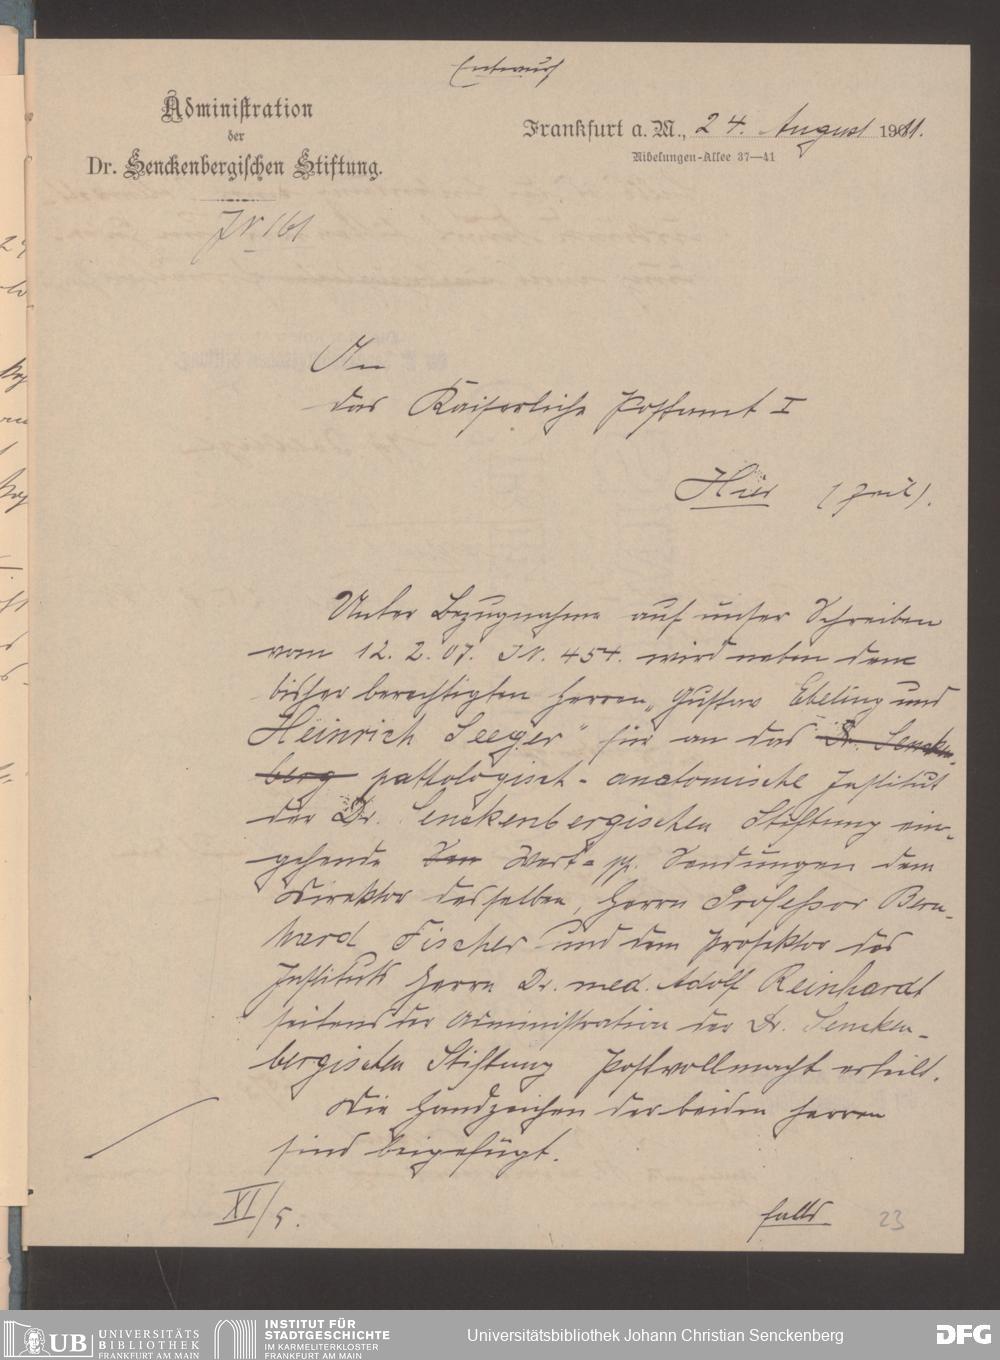 Entwurf
Administration
der
Dr. Senckenbergischen Stiftung.
Frankfurt a. M., 24. August 1911.
Nibelungen-Allee 37—41
JN 161
An
das Kaiserliche Postamt I
Hier (Zeil).
Unter Bezugnahme auf unser Schreiben
vom 12. 2. 07. JN. 454. wird neben dem
bisher berechtigten Herren „Gustav Ebeling und
Heinrich Seeger" für an das Dr. Sencken-
berg pathologisch-anatomische Institut
der Dr. Senckenbergischen Stiftung ein-
gehende Wert- pp. Sendungen dem
Direktor desselben, Herrn Professor Bern-
hard Fischer und dem Prosektor des
Instituts Herrn Dr. med. Adolf Reinhardt
seitens der Administration der Dr. Sencken-
bergischen Stiftung Postvollmacht erteilt.
Die Handzeichen der beiden Herren
sind beigefügt.
XI/5.
falls
23
UB UNIVERSITÄTS
BIBLIOTHEK
FRANKFURT AM MAIN
INSTITUT FÜR
STADTGESCHICHTE
IM KARMELITERKLOSTER
FRANKFURT AM MAIN
Universitätsbibliothek Johann Christian Senckenberg
DFG